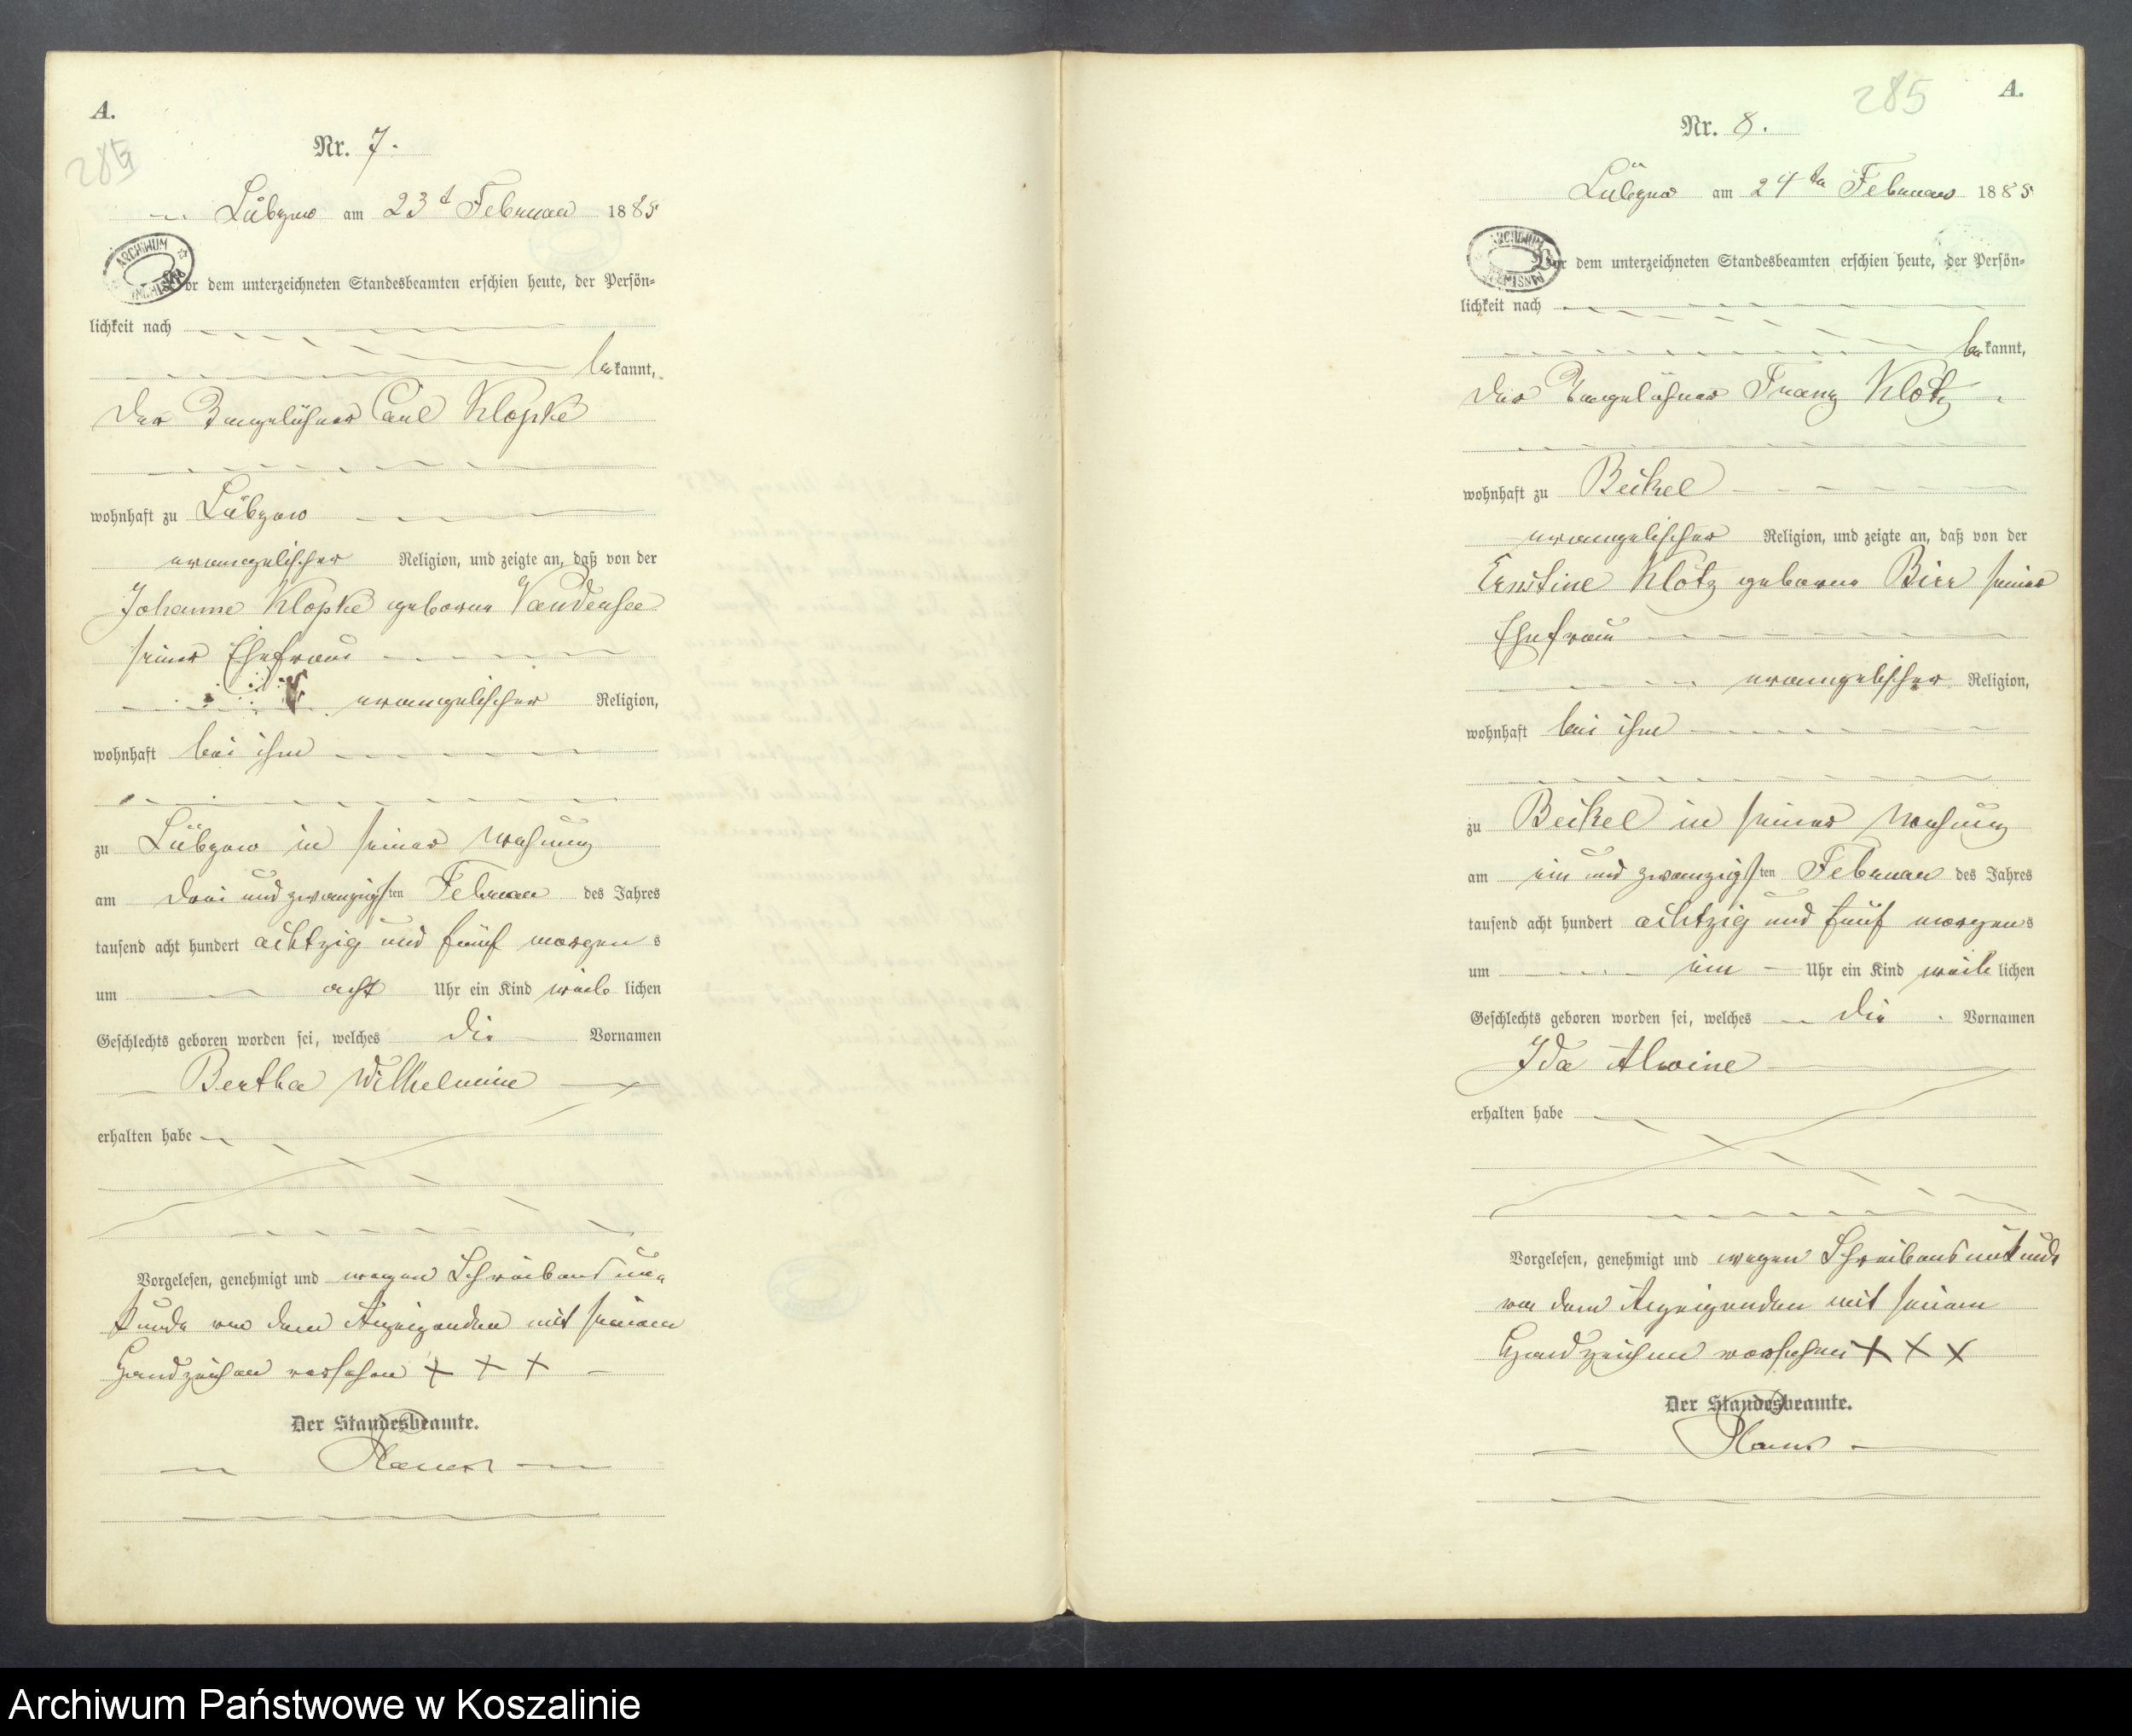 A.
285
Nr. 7.
Lübzow am 23t Februar 1885
ARCHIWUM
Vor dem unterzeichneten Standesbeamten erschien heute, der Persön=
lichkeit nach
bekannt,
der Tagelöhner Carl Klopke
wohnhaft zu Lübzow
evangelischer Religion, und zeigte an, daß von der
Johanne Klopke geborne Vandersee
seiner Ehefrau
evangelischer Religion,
wohnhaft bei ihm
zu Lübzow in seiner Wohnung
am drei und zwanzigsten Februar des Jahres
tausend acht hundert achtzig und fünf morgens
um acht Uhr ein Kind weiblichen
Geschlechts geboren worden sei, welches die Vornamen
Bertha Wilhelmine
erhalten habe
Vorgelesen, genehmigt und wegen Schreibens un=
kunde von dem Anzeigenden mit seinem
Handzeichen versehen + + +
Der Standesbeamte.
285
A.
Nr. 8.
Lübzow am 24ten Februar 1885
ARCHIWUM
Vor dem unterzeichneten Standesbeamten erschien heute, der Persön=
lichkeit nach
bekannt,
der Tagelöhner Franz Klotz
wohnhaft zu Beckel
evangelischer Religion, und zeigte an, daß von der
Ernstine Klotz geborne Bier seiner
Ehefrau
evangelischer Religion,
wohnhaft bei ihm
zu Beckel in seiner Wohnung
am ein und zwanzigsten Februar des Jahres
tausend acht hundert achtzig und fünf morgens
um ein Uhr ein Kind weiblichen
Geschlechts geboren worden sei, welches die Vornamen
Ida Alwine
erhalten habe
Vorgelesen, genehmigt und wegen Schreibensunkunde
von dem Anzeigenden mit seinem
Handzeichen versehen + + +
Der Standesbeamte.
Archiwum Państwowe w Koszalinie